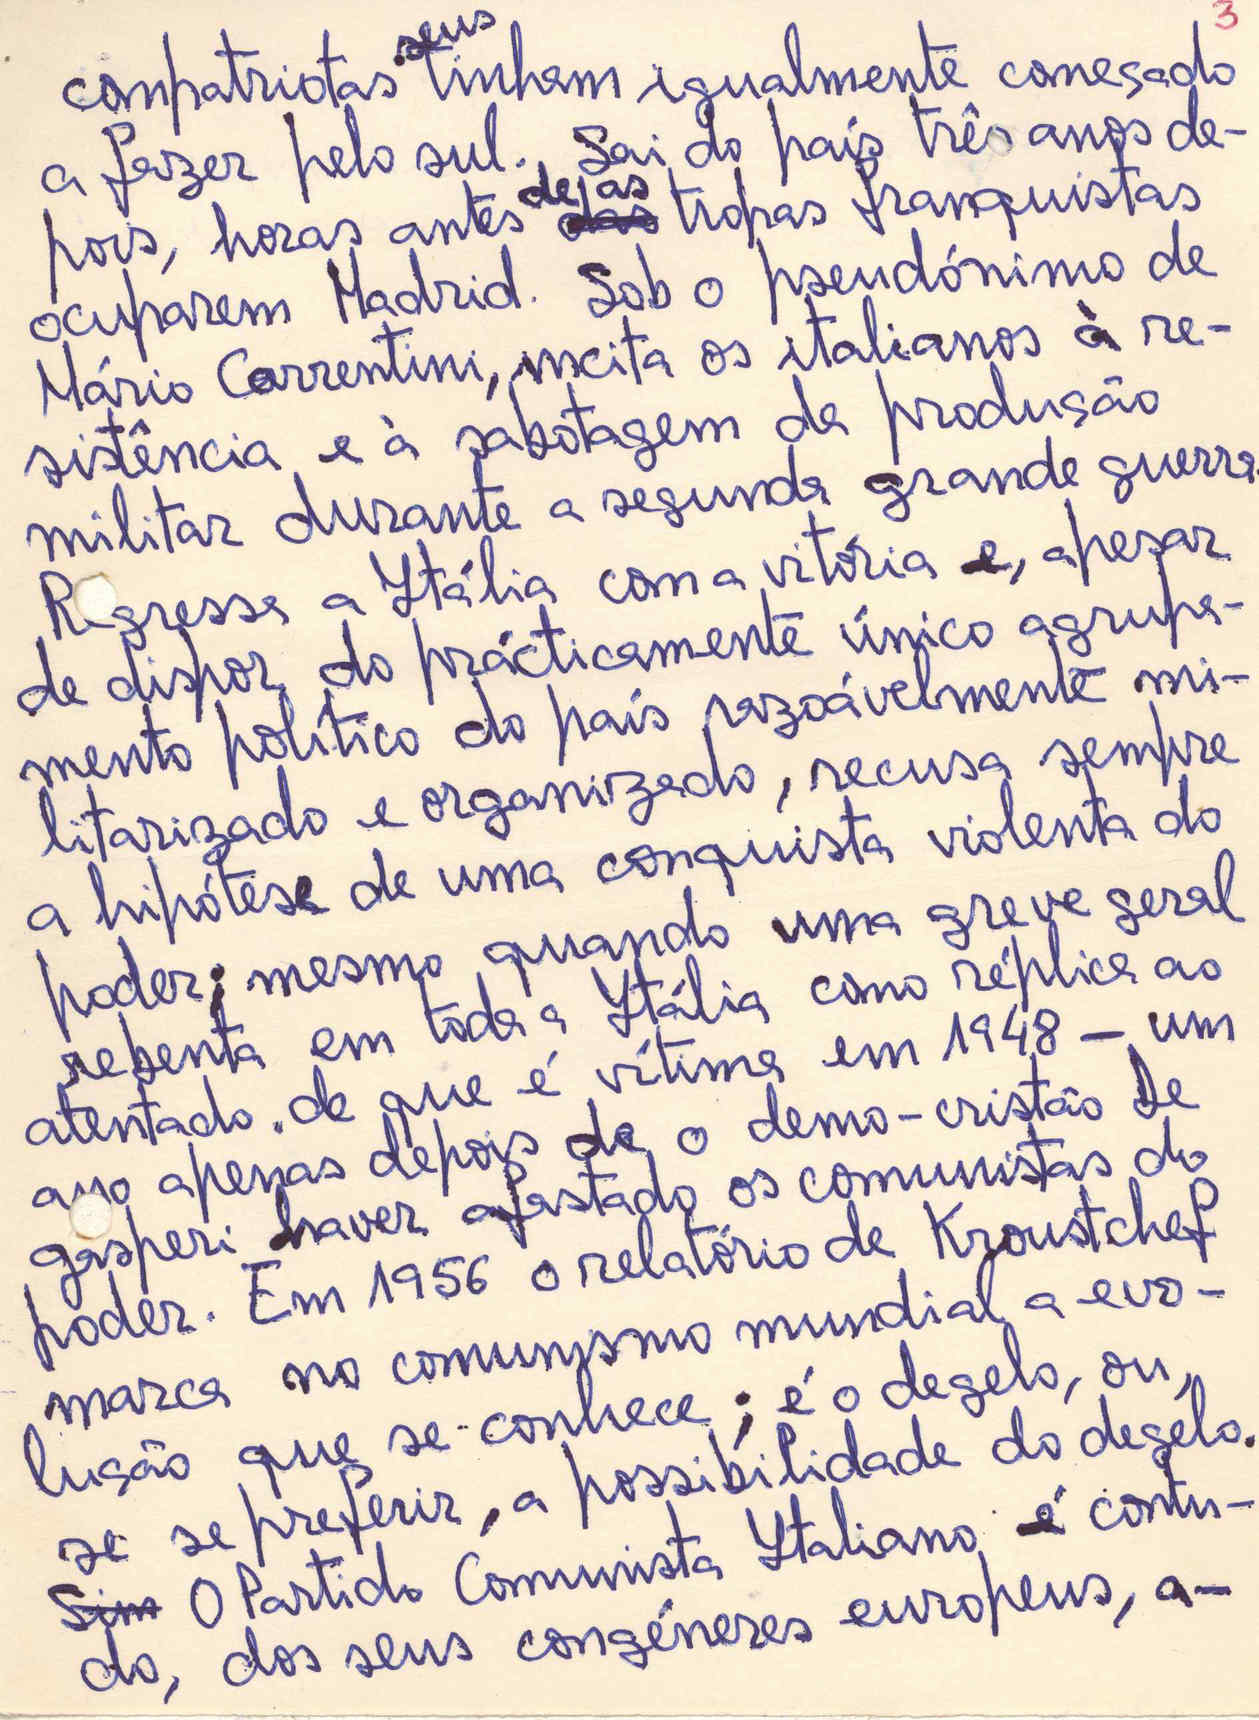 3
compatriotas seus tinham igualmente começado
a fazer pelo sul. Sai do país três anos de-
pois, horas antes de as tropas franquistas
ocuparem Madrid. Sob o pseudónimo de
Mário Correntini, incita os italianos à re-
sistência e à sabotagem da produção
militar durante a segunda grande guerra.
Regressa a Itália com a vitória e, apesar
de dispor do prácticamente único agrupa-
mento político do país razoávelmente mi-
litarizado e organizado, recusa sempre
a hipótese de uma conquista violenta do
poder; mesmo quando uma greve geral
rebenta em toda a Itália como réplica ao
atentado de que é vítima em 1948 – um
ano apenas depois de o demo-cristão De
gasperi haver afastado os comunistas do
poder. Em 1956 o relatório de Kroustchef
marca no comunismo mundial a evo-
lução que se conhece; é o degelo, ou,
se se preferir, a possibilidade do degelo.
Sim O Partido Comunista Italiano é contu-
do, dos seus congéneres europeus, a-